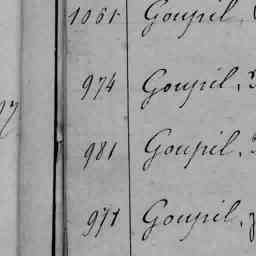 1061 Goupil,
974 Goupil,
981 Goupil,
971 Goupil,